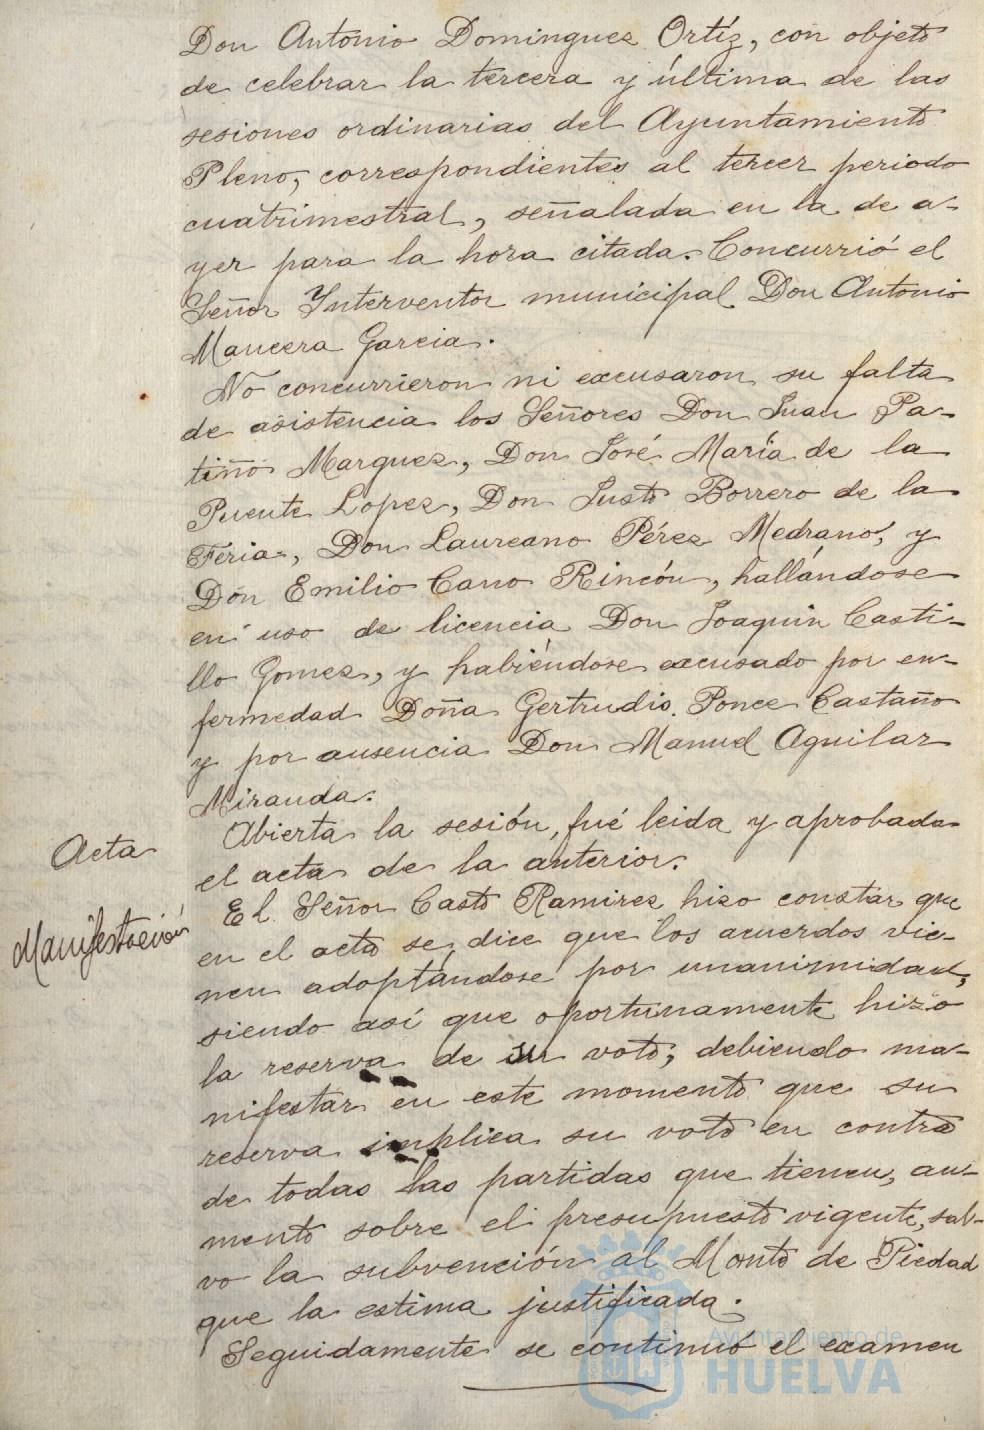 Don Antonio Dominguez Ortíz, con objeto
de celebrar la tercera y última de las
sesiones ordinarias del Ayuntamiento
Pleno, correspondientes al tercer periodo
cuatrimestral, señalada en la de a-
yer para la hora citada. Concurrió el
Señor Interventor municipal Don Antonio
Mancera Garcia.
No concurrieron ni excusaron su falta
de asistencia los Señores Don Juan Pa-
tiño Marquez, Don José María de la
Puente Lopez, Don Justo Borrero de la
Feria, Don Laureano Pérez Medrano, y
Don Emilio Cano Rincón, hallándose
en uso de licencia Don Joaquin Casti-
llo Gomez, y habiéndose excusado por en-
fermedad Doña Gertrudis Ponce Castaño
y por ausencia Don Manuel Aguilar
Miranda.
Acta
Abierta la sesión, fué leida y aprobada
el acta de la anterior.
Manifestación
El Señor Casto Ramirez hizo constar que
en el acta se dice que los acuerdos vie-
nen adoptándose por unanimidad,
siendo así que oportunamente hizo
la reserva de su voto; debiendo ma-
nifestar en este momento que su
reserva implica su voto en contra
de todas las partidas que tienen, au-
mento sobre el presupuesto vigente, sal-
vo la subvención al Monte de Piedad
que la estima justificada.
Seguidamente se continuó el examen
Ayuntamiento de
HUELVA